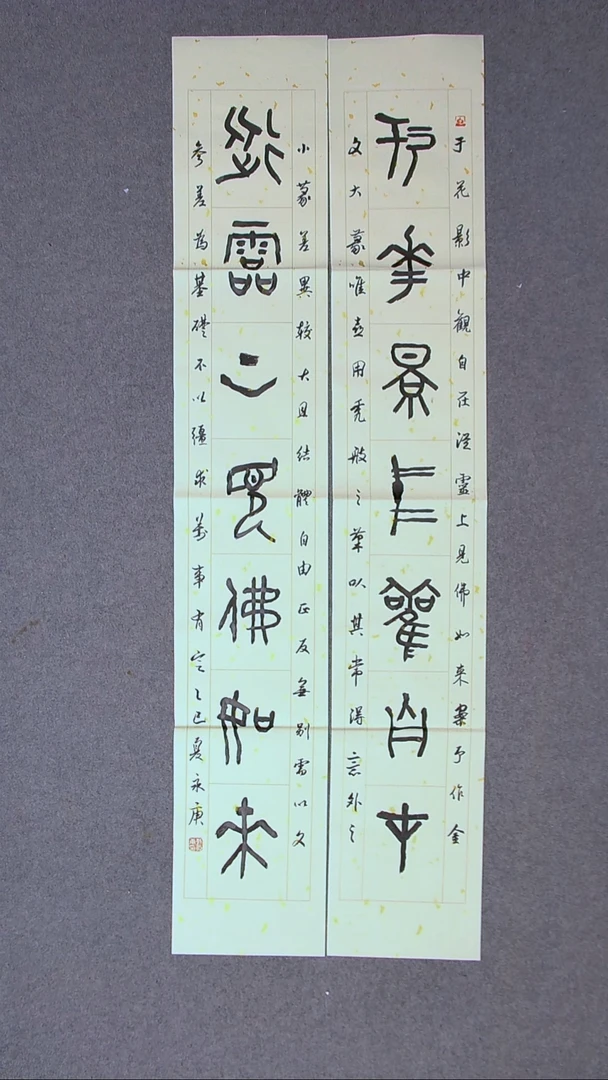 于花影中觀自在靈上見佛如来案予作金
于花景中觀自在
文大篆唯喜用禿般之筆以其常得意外之
小篆差異較大且結體自由正反無別需以文
靈上見佛如来
參差為基礎不以彊求萬事有定乙巳夏永庚